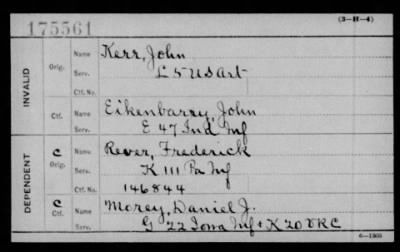 175561
(3-H-4)
INVALID
Orig.
Name Kerr, John
Serv. L 5 US Art
Ctf. No.
Ctf.
Name Eikenbarry, John
Serv. E 47 Ind Inf
DEPENDENT
C
Orig.
Name Rever, Frederick
Serv. K 111 Pa Inf
Ctf. No. 146844
C
Ctf.
Name Morey, Daniel J.
Serv. G 22 Iowa Inf + K 20 VRC